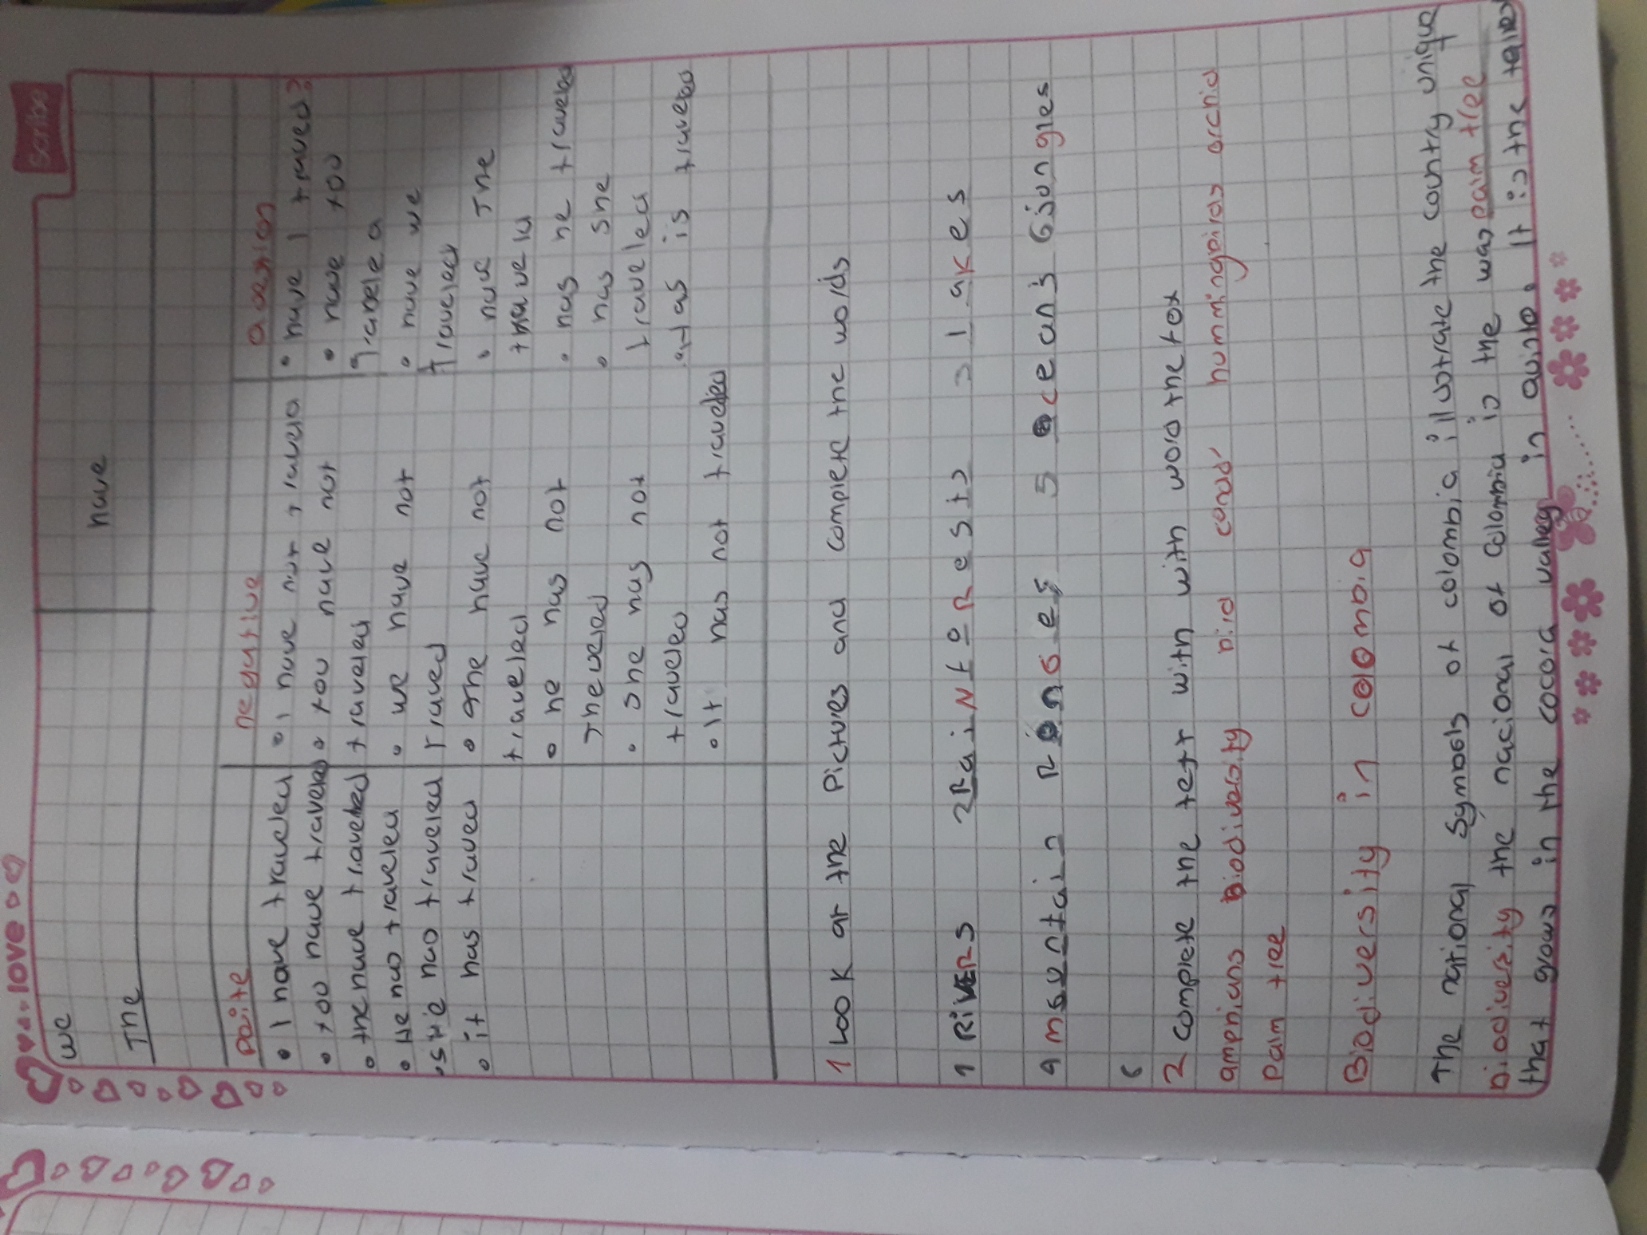 scribe
love
we
have
The
Paite
negative
Question
• I have traveled
• You have traveled
• the have traveled
• He has traveled
• she has traveled
• it has traved
• I have not traveld
• you have not
traveled
• we have not
traved
• The have not
traveled
• he has not
Theveled
• she has not
traveled
• It has not traveled
• have I traved?
• have you
• have we
Traveled
• have The
traveld
• has he traveled
• has she
traveled
• Has is traveled
1 Look at the Pictures and complete the words
1 RiVERS 2 RaiNfoRests 3 lakes
4 mountain Ranges 5 oceans 6 jongles
6
2 complete the text with with word the tex
ampnians Biodiversity bird condor hummingbirds orchid
Palm tree
Biodiversity in colombia
The national symbols of colombia illustrate the country unique
biodiversity the nacional of colombia is the wax palm tree
that grows in the cocora valley in quindo. It is the